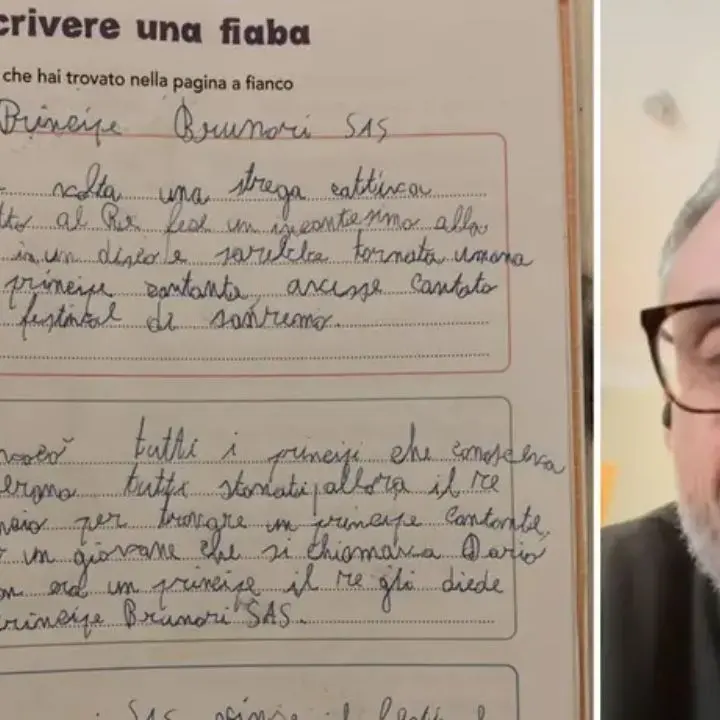 crivere una fiaba
che hai trovato nella pagina a fianco
Principe Brunori SAS
volta una strega cattiva
al Re fece un incantesimo alla
in un disco e sarebbe tornata umana
principe cantante avesse cantato
festival di sanremo.
tutti i principi che conosceva
erano tutti stonati, allora il re
per trovare un principe cantante,
un giovane che si chiamava Dario
on era un principe il re gli diede
principe Brunori SAS.
SAS